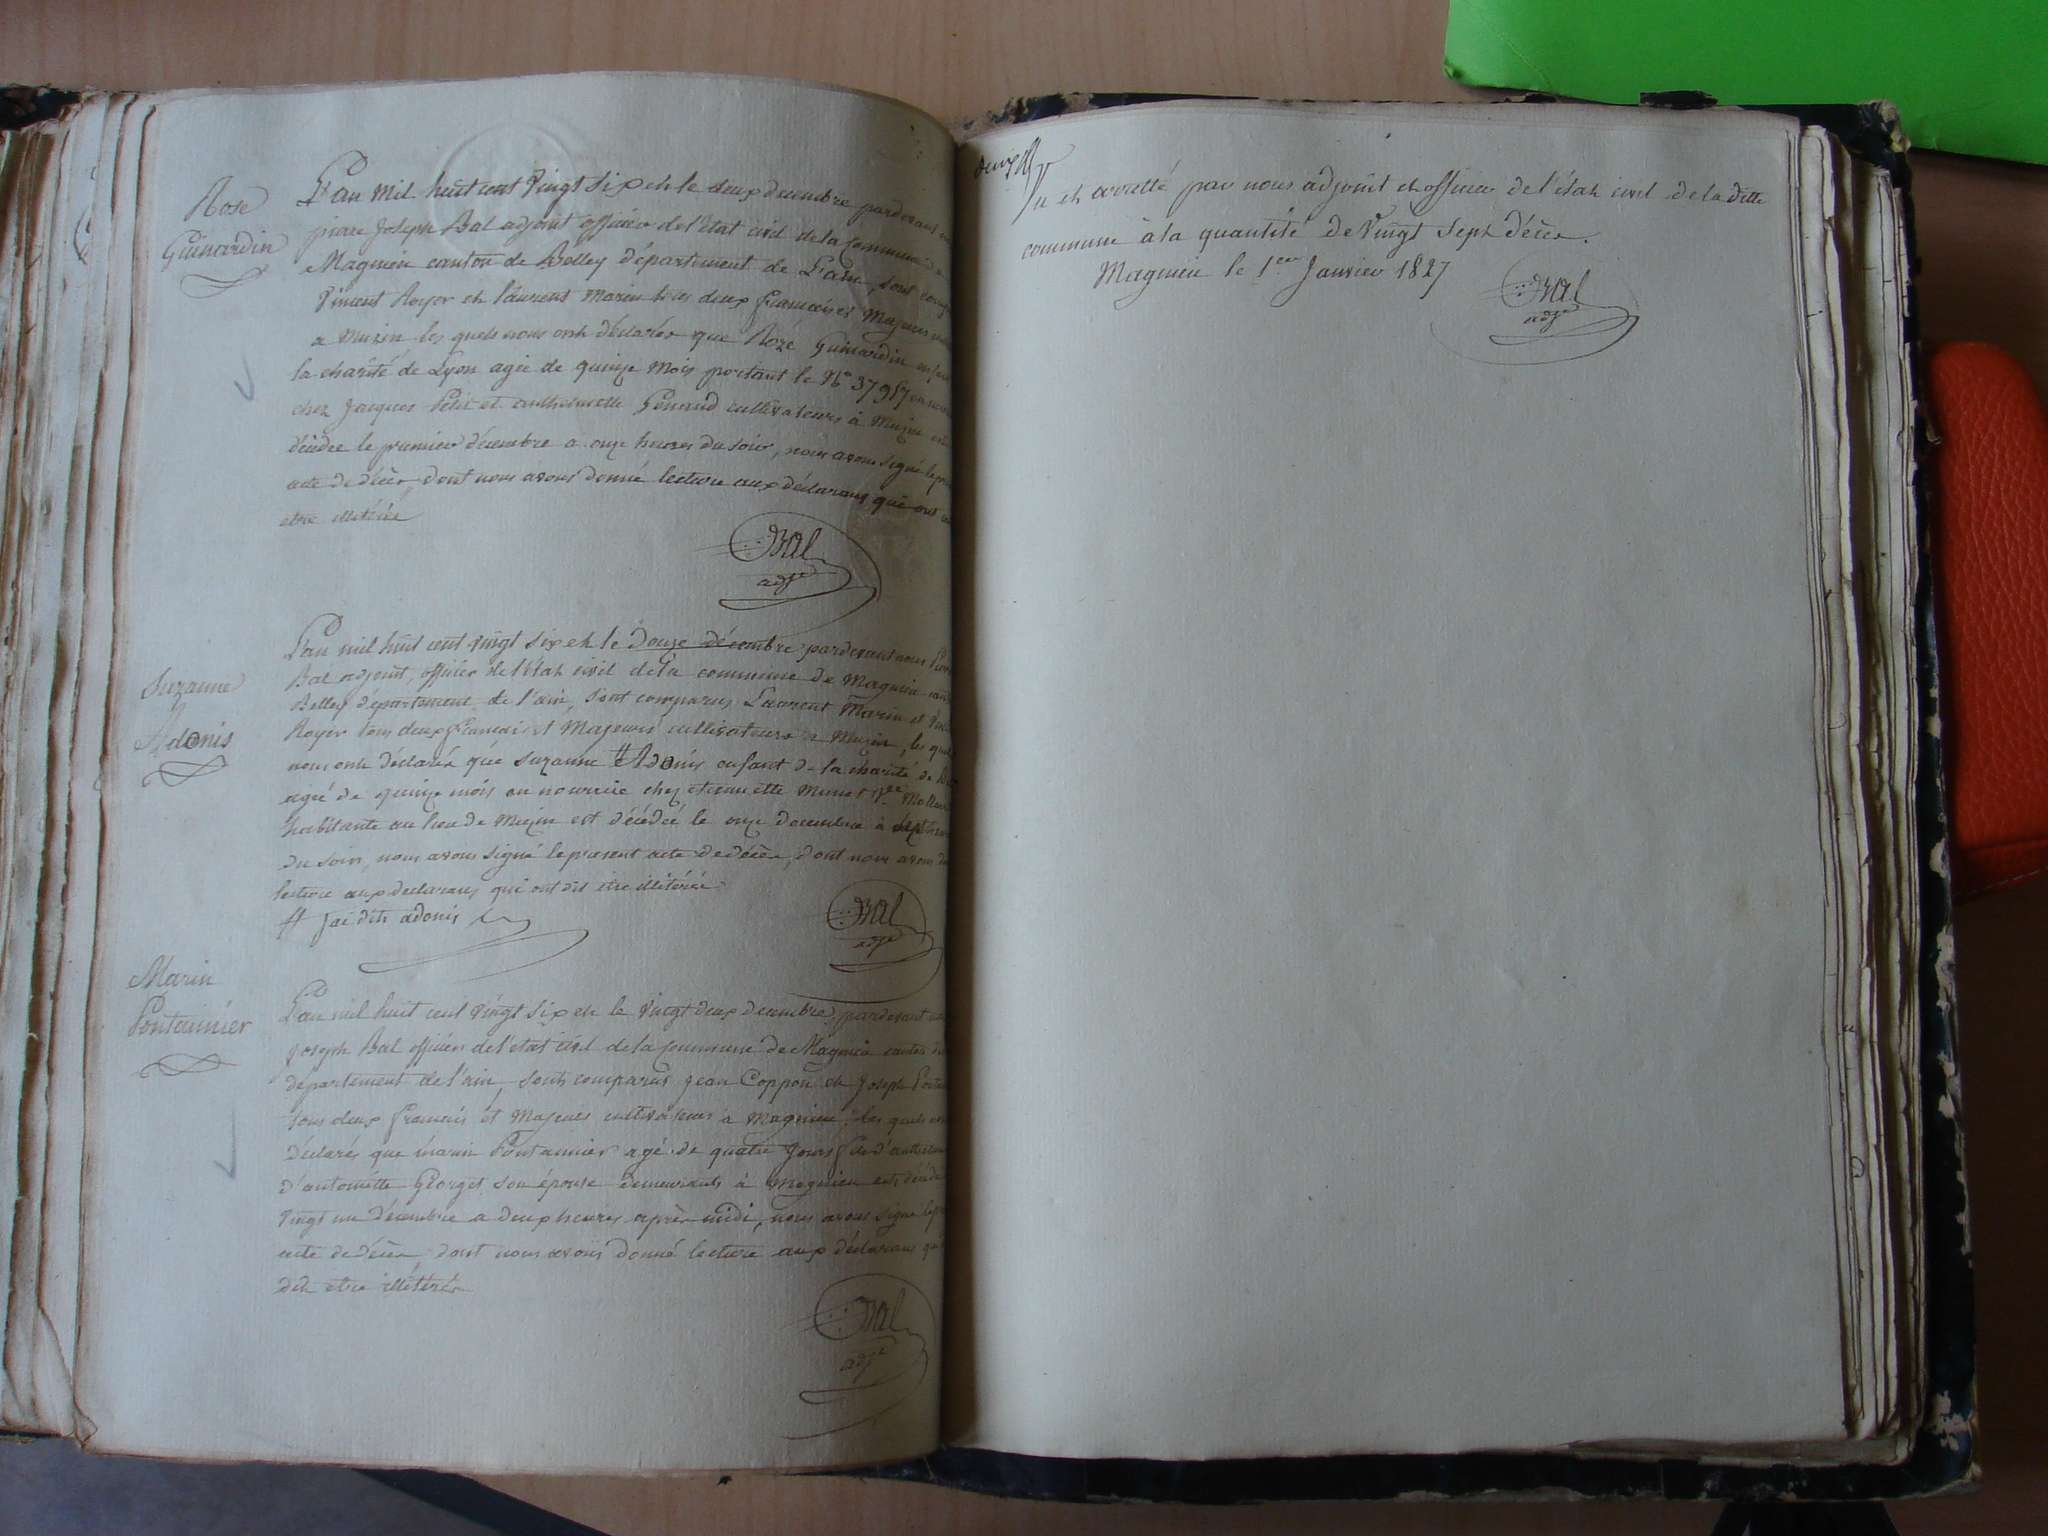 Rose
Guinardin
L'an mil huit cent vingt six et le deux decembre pardevant
piere Joseph Bal adjoint officier de l'état civil de la commune
Magnieu canton de Belley département de L'ain, sont
Vincent Royer et laurent Marin tous deux francaises Majeurs
a Muzin les quels nous ont déclarés que Roze Guinardin
la charité de Lyon agée de quinze Mois portant le N° 37957 en
chez Jacques Petit et anthelmette Genand cultivateurs à Muzin
décédee le premier décembre a onze heures du soir, nous avons signé le
acte de décès, dont nous avons donné lecture aux déclarans qui ont
etre illitérés
Bal
adj
Suzanne
Adonis
L'an mil huit cent vingt six et le douze décembre pardevant nous
Bal adjoint, officier de l'état civil de la commune de Magnieu
Belley département de l'ain, sont comparus Laurent Marin et
Royer tous deux francais et Majeurs cultivateurs a Muzin, les
nous ont déclarés que Suzanne # Adonis enfant de la charité de
agée de quinze mois en nourrice chez etiennette
habitante au lieu de Muzin est décédée le onze decembre à sept
du soir, nous avons signé le present acte de décès, dont nous avons
lecture aux declarans qui ont dit etre illitérés
# j'ai dit adonis
Bal
adj
Marin
Pontannier
L'an mil huit cent vingt six et le vingt deux decembre, pardevant
Joseph Bal officier de l'etat civil de la commune de Magnieu canton
departement de l'ain, sont comparus Jean Coppon et Joseph
tous deux francais et Majeurs cultivateurs a Magnieu, les quels
déclarés que marin Pontannier agé de quatre Jours fils
d'antoinette Georget son épouse demeurants à Magnieu est
vingt un décembre a deux heures après midi, nous avons signé
acte de décès dont nous avons donné lecture aux déclarans
dit etre illitérés
Bal
adj
Vu et arretté par nous adjoint et officier de l'état civil de la ditte
commune à la quantité de vingt sept décès.
Magnieu le 1er Janvier 1827
Bal
adj